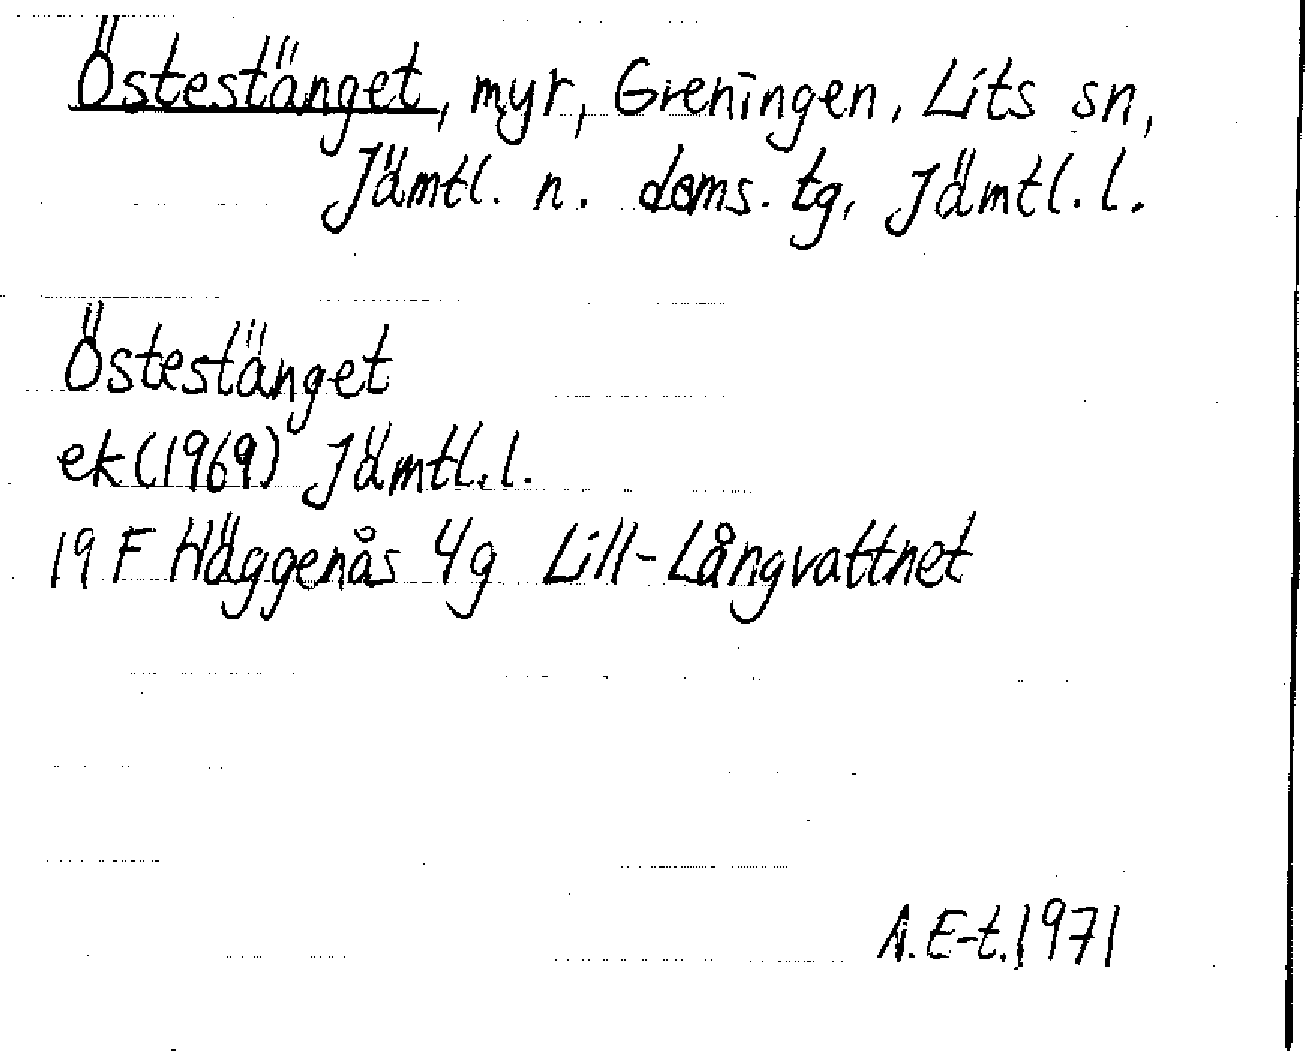 Östestänget, myr, Greningen, Lits sn,
Jämtl. n. doms. tg, Jämtl. l.
Östestänget
ek (1969) Jämtl. l.
19 F Häggenås 4g Lill-Långvattnet
A. E-t. 1971